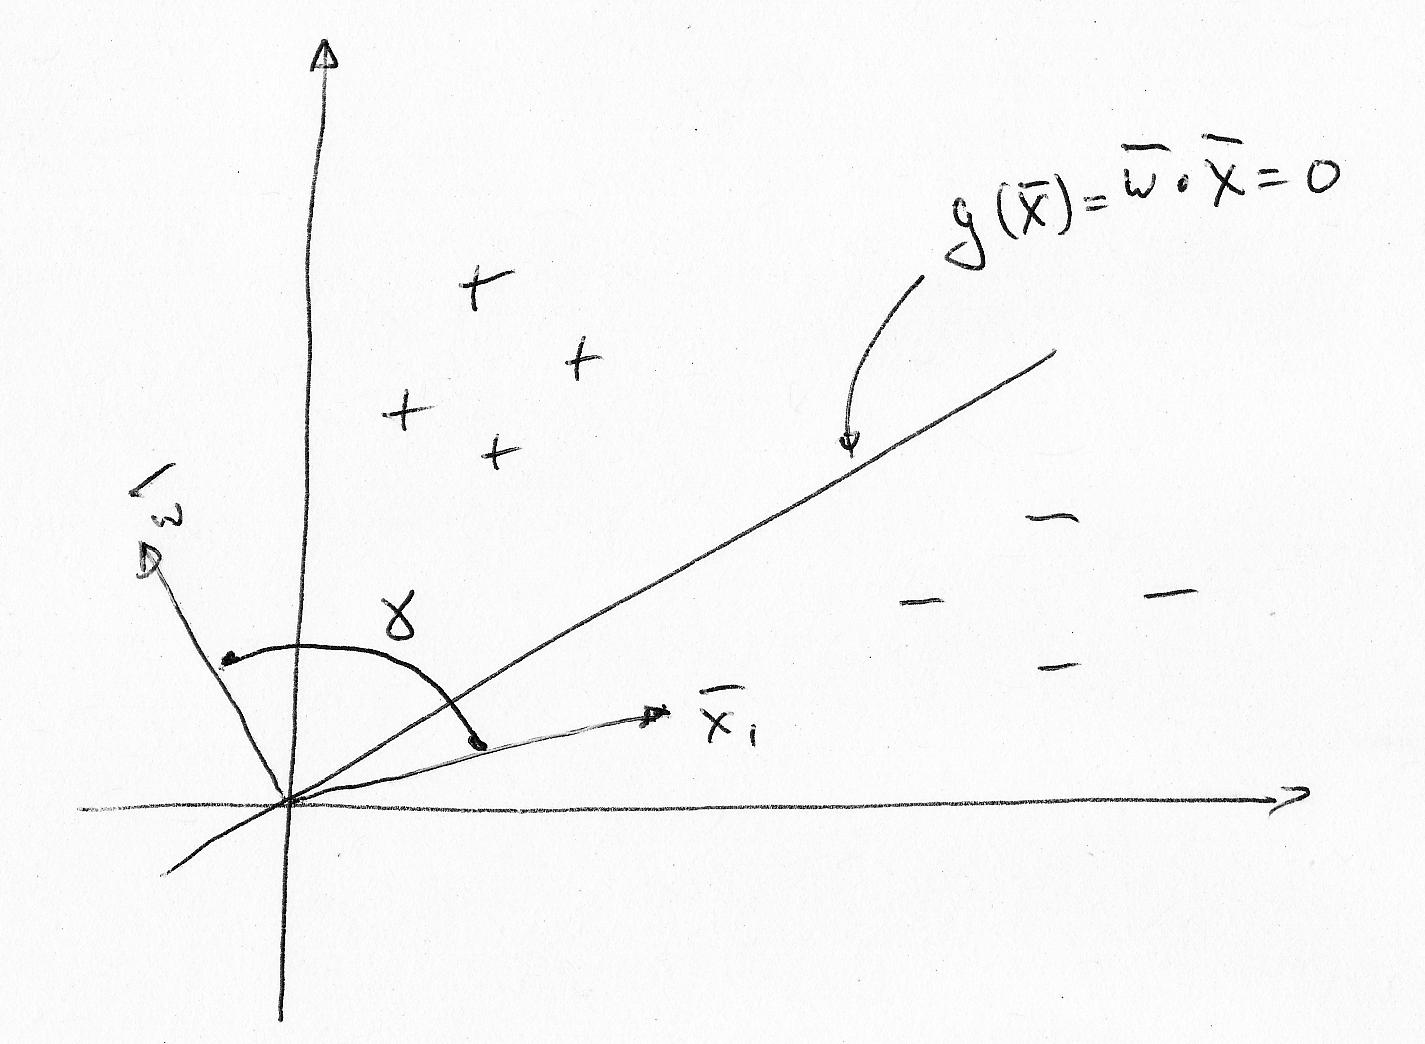 g(x̄) = w̄ · x̄ = 0
+
+
+
+
w̄
−
γ
−
−
−
x̄ᵢ